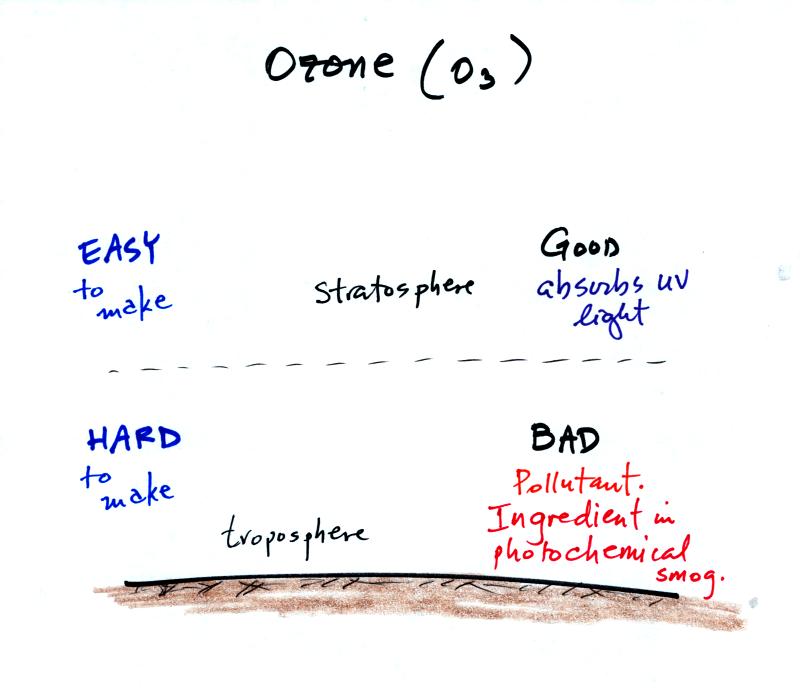 Ozone (O3)
EASY
to
make
stratosphere
GOOD
absorbs uv
light
HARD
to
make
troposphere
BAD
Pollutant.
Ingredient in
photochemical
smog.